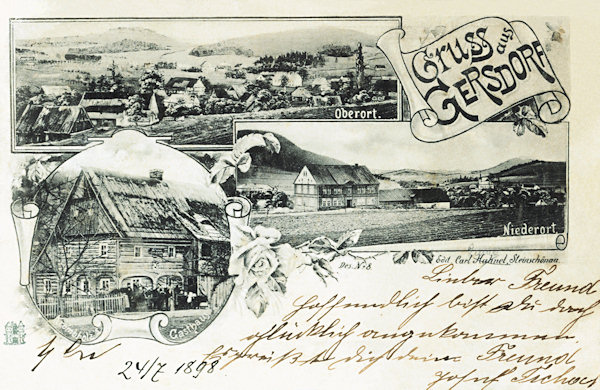 Gruss aus
GERSDORF
Oberort.
Niederort.
Des. No 8.
Edit. Carl Hühnel, Steinschönau.
Lieber Freund
hoffendlich bist du doch
glücklich angekommen
Es grüßt dich dein Freund
Josef
24/7 1898